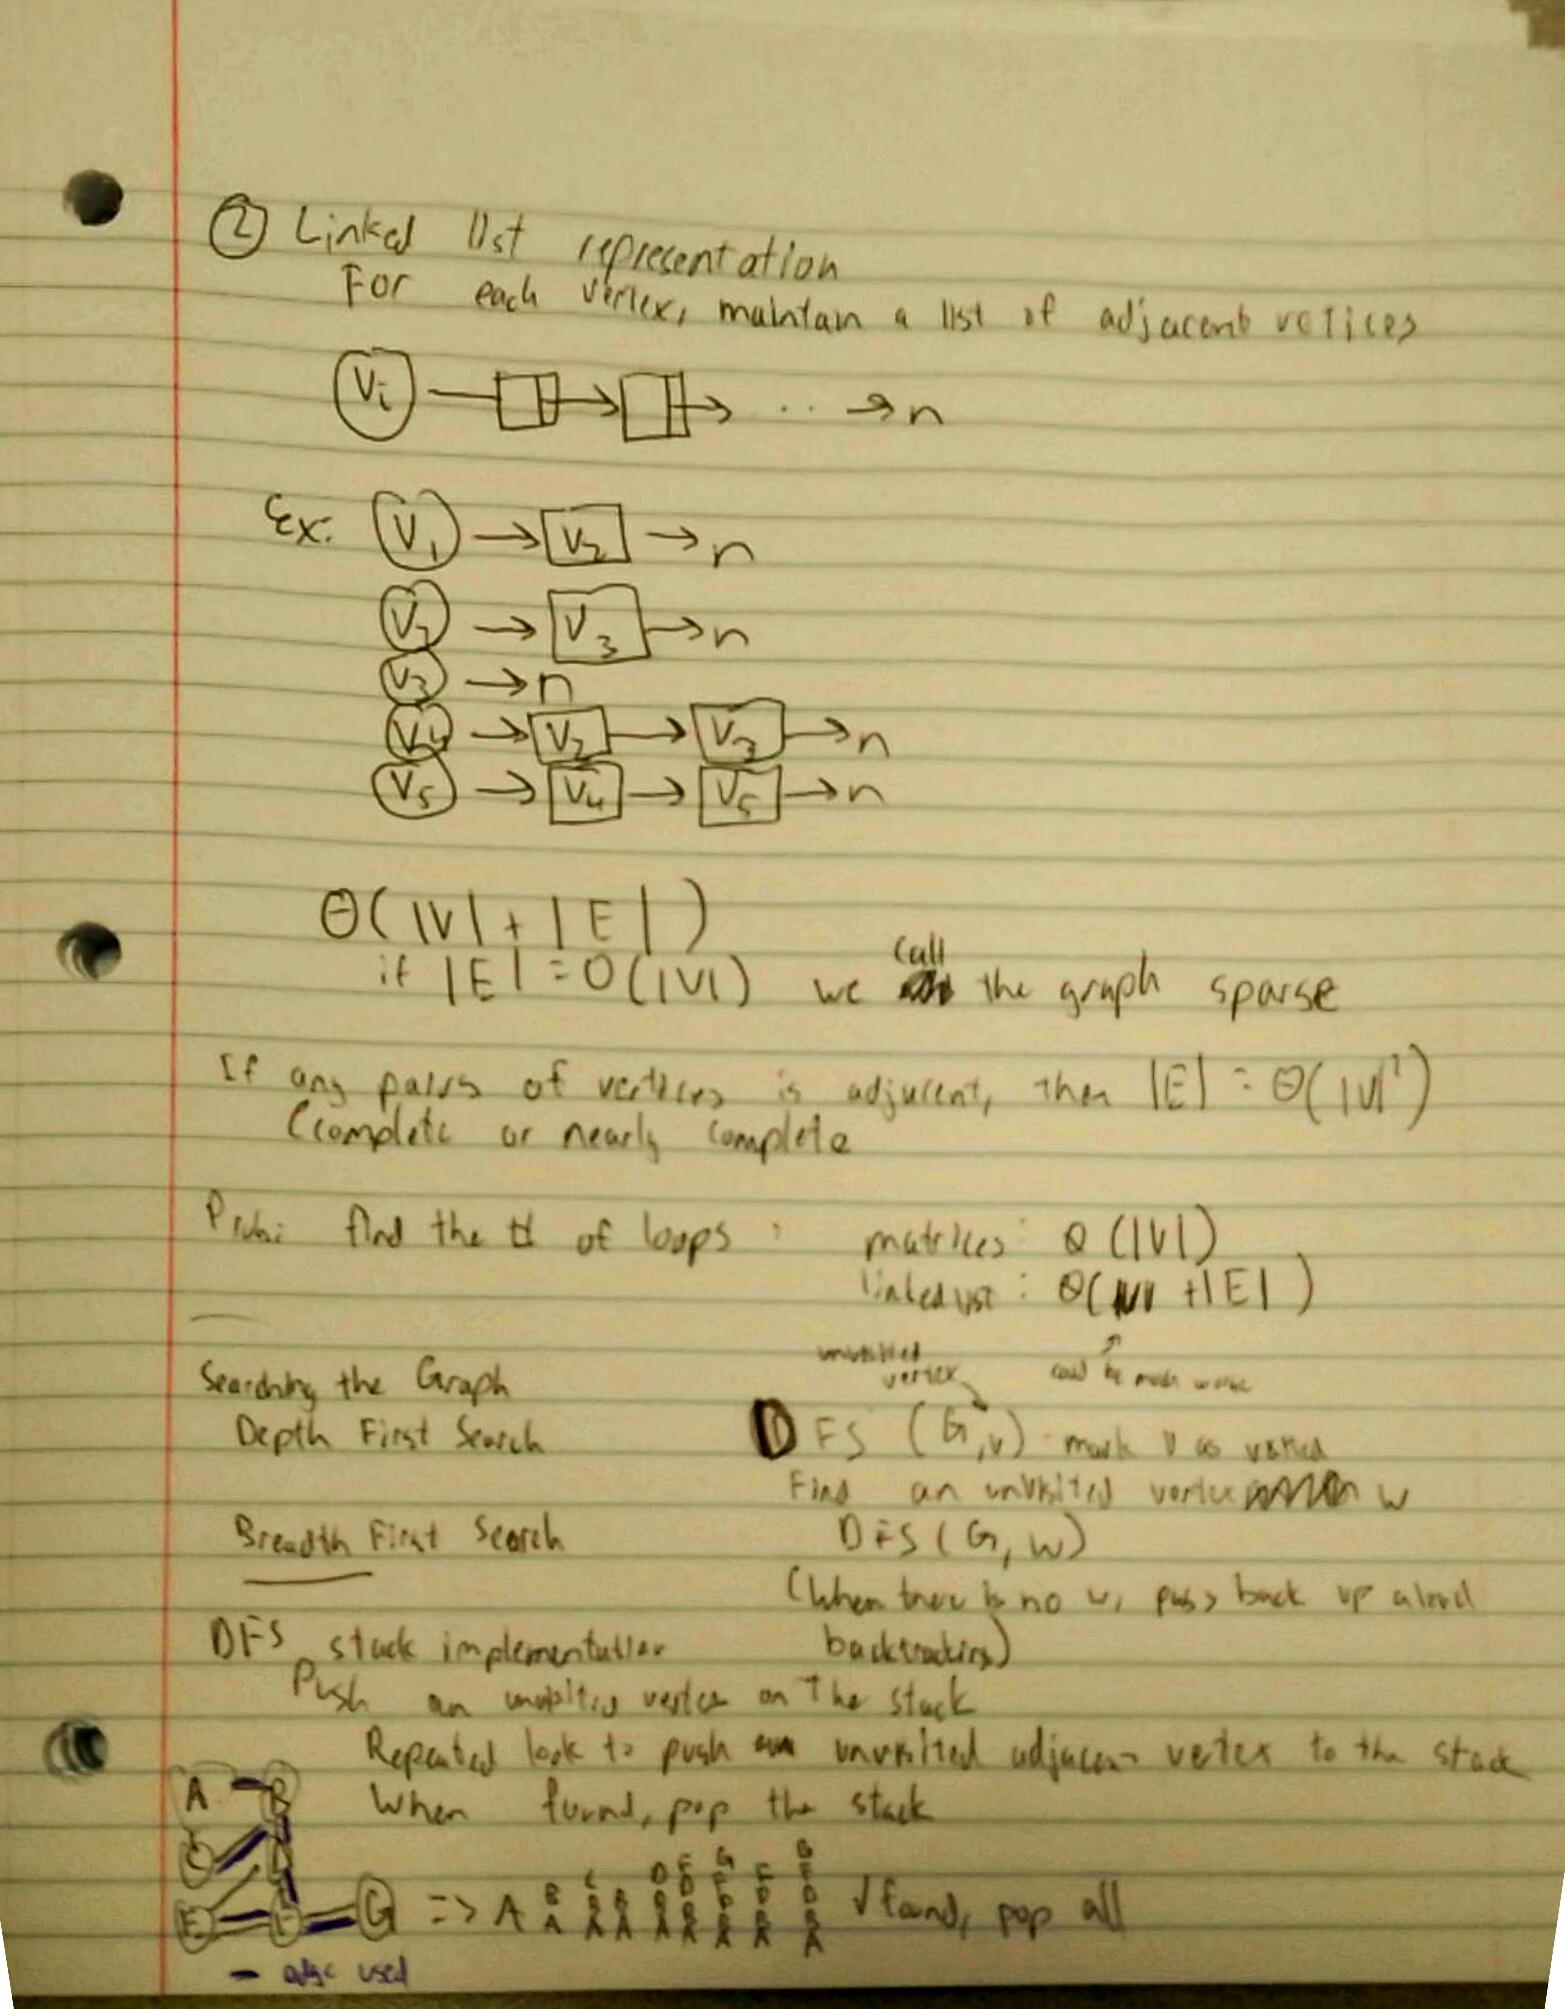 ② Linked list representation
For each vertex, maintain a list of adjacent vetices
Vi → → ·· → n
Ex: V1 → V2 → n
V2 → V3 → n
V3 → n
V4 → V2 → V3 → n
V5 → V4 → V5 → n
Θ(|V| + |E|)
if |E| = O(|V|) we call the graph sparse
If any pairs of vertices is adjacent, then |E| = Θ(|V|²)
(complete or nearly complete
Prob: find the # of loops : matrices: Θ(|V|)
linked list: Θ(|V| + |E|)
could be much worse
unvisited
vertex
Searching the Graph
Depth First Search
DFS (G,v) - mark v as visited
Find an unvisited vertex w
Breadth First Search
DFS(G, w)
(When there is no w, pass back up
backtracking)
DFS stack implementation
Push an unvisited vertex on the stack
Repeated look to push an unvisited adjacent vertex to the stack
When found, pop the stack
A B
E G ⇒ A
√ found, pop all
— edge used